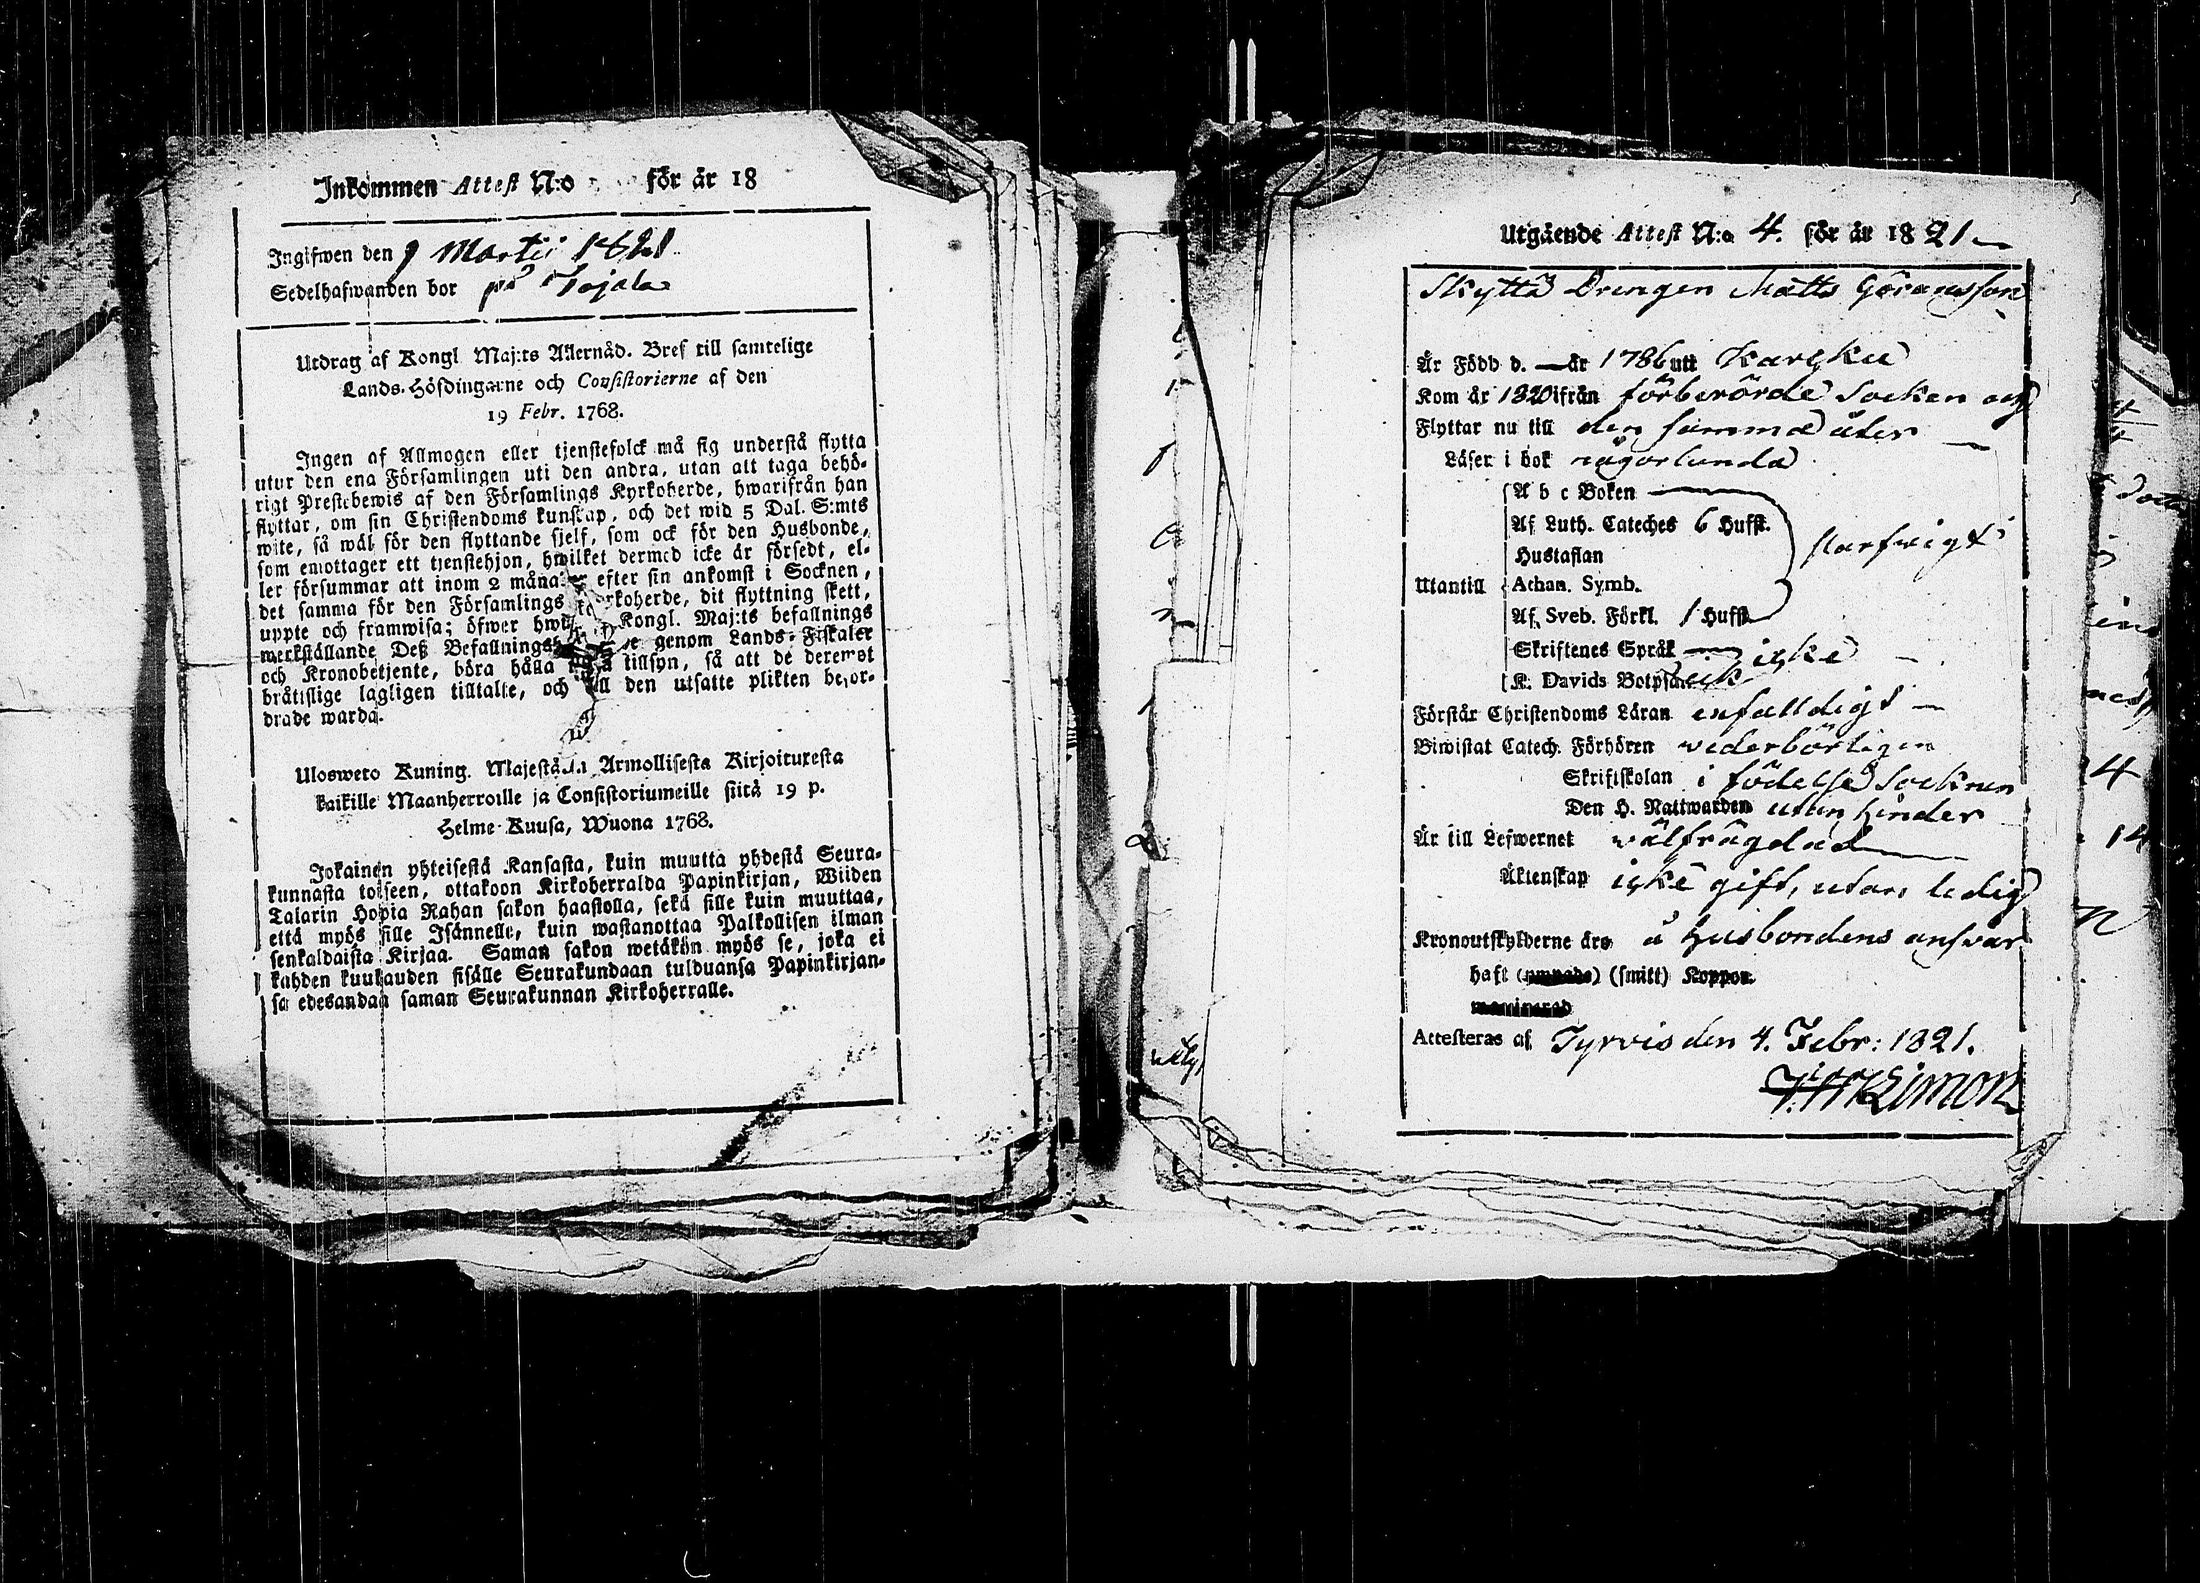 Inkommen Attest N:o för år 18
Ingifwen den 9 Martii 1821.
Sedelhafwanden bor på Tojala
Utdrag af Kongl. Maj:ts Allernåd. Bref till samtelige
Lands-Höfdingarne och Consistorierne af den
19 Febr. 1768.
Ingen af Allmogen eller tjenstefolck må sig understå flytta
utur den ena Församlingen uti den andra, utan att taga behö-
rigt Prestebewis af den Församlings Kyrkoherde, hwarifrån han
flyttar, om sin Christendoms kunskap, och det wid 5 Dal. S:mts
wite, så wäl för den flyttande sjelf, som ock för den Husbonde,
som emottager ett tjenstehjon, hwilket dermed icke är försedt, el-
ler försummar att inom 2 månader efter sin ankomst i Socknen,
det samma för den Församlings Kyrkoherde, dit flyttning skett,
uppte och framwisa; öfwer Kongl. Maj:ts befallnings
werkställande Deß genom Lands-Fiskaler
och Kronobetjente, böra hålla tillsyn, så att de deremot
bråttslige lagligen tilltalte, och till den utsatte plikten befor-
drade warda.
Ulosweto Kuning. Majestätin Armollisesta Kirjoituxesta
kaikille Maanherroille ja Consistoriumeille siitä 19 p.
Helme-Kuusa, Wuona 1768.
Jokainen yhteisestä Kansasta, kuin muutta yhdestä Seura-
kunnasta toiseen, ottakoon Kirkoherralda Papinkirjan, Wiiden
Talarin Hopia Rahan sakon haastolla, sekä sille kuin muuttaa,
että myös sille Isännelle, kuin wastanottaa Palkollisen ilman
senkaldaista Kirjaa. Saman sakon wetäkön myös se, joka ei
kahden kuukauden sisälle Seurakundaan tulduansa Papinkirjan-
sa edesandaa saman Seurakunnan Kirkoherralle.
Utgående Attest N:o 4. för år 1821
Skyttä Drengen Matts Göransson
Är Född d. — år 1786 utt Karcku
Kom år 1820 ifrån förberörde Socken och
Flyttar nu till den samma åter
Läser i bok någorlunda
A b c Boken
Af Luth. Cateches 6 Hufst.
slarfwigt
Hustaflan
Utantill Athan. Symb.
Af Sveb. Förkl. 1 Hufst.
Skriftenes Språk icke
K. Davids Botpsalm
Förstår Christendoms Läran enfalldigt
Biwistat Catech. Förhören wederbörligen
Skriftskolan i födelse Socknen
Den H. Nattwarden utan hinder
Är till Lefwernet wälfrägdad
Äktenskap icke gift, utan ledig
Kronoutskylderne äro å Husbondens answar
haft (smitt) Koppor.
Attesteras af Tyrvis den 4. Febr: 1821.